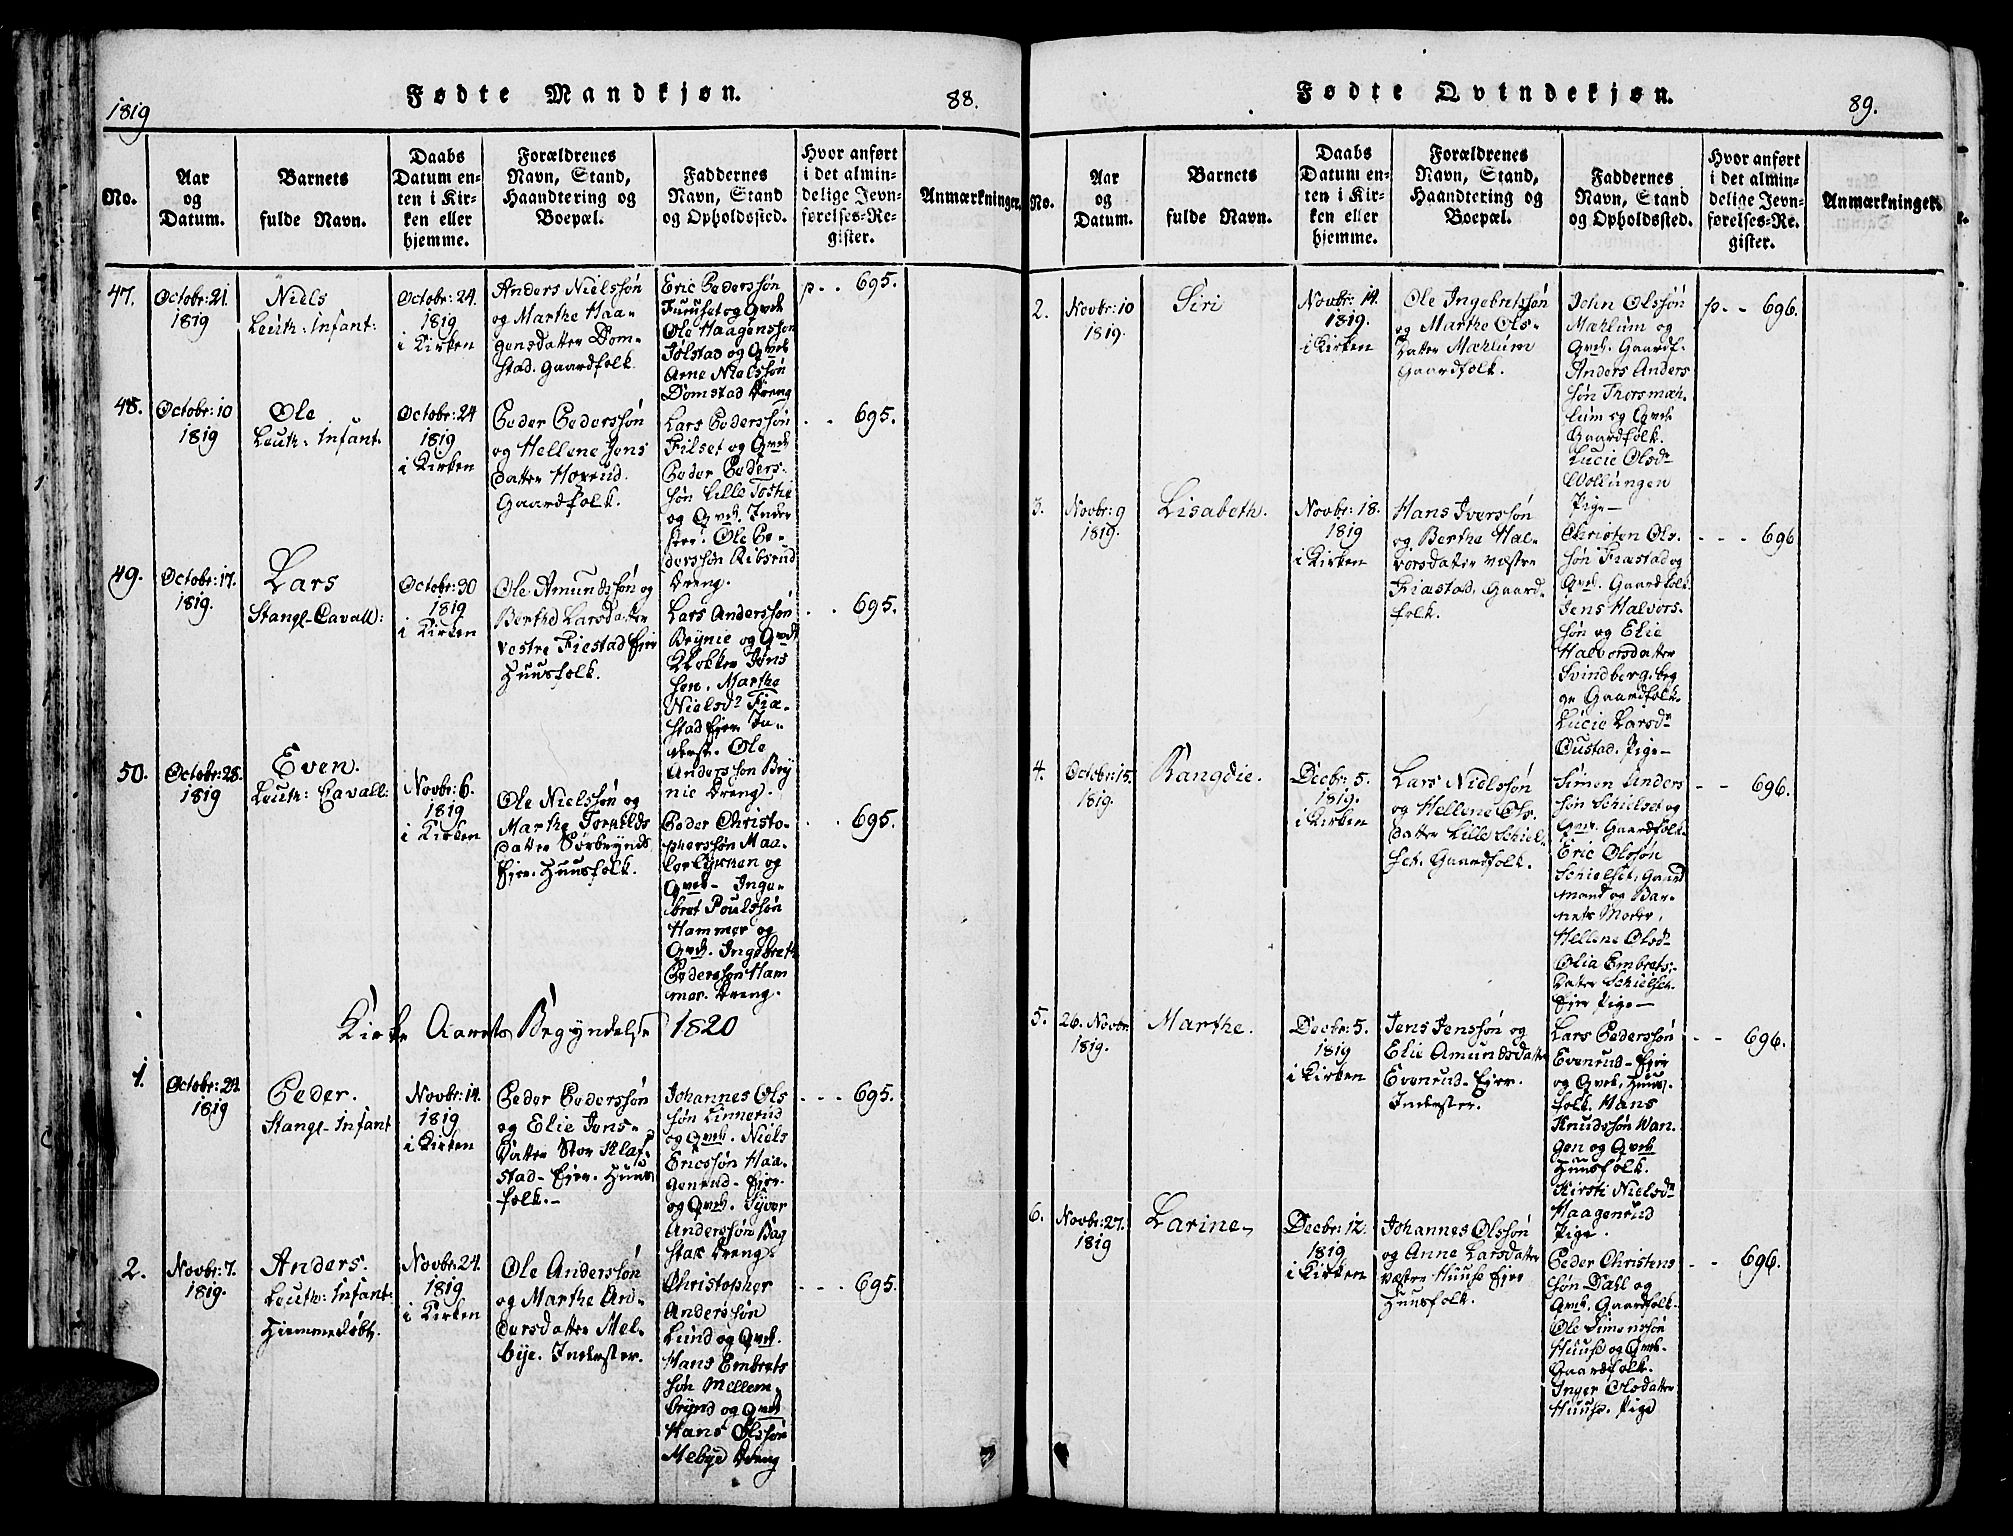 1819
Fødte Mandkjøn.
88.
No.
Aar
og
Datum.
Barnets
fulde Navn.
Daabs
Datum en-
ten i Kir-
ken eller
hjemme.
Forældrenes
Navn, Stand,
Haandtering og
Boepæl.
Faddernes
Navn, Stand
og Opholdssted.
Hvor anført
i det almin-
delige Jevn-
førelses-Re-
gister.
Anmærkninger.
47.
Octobr: 21.
1819
Niels
Leuth: Infant:
Octobr: 24.
1819
i Kirken
Anders Nielssøn
og Marthe Haa-
gensdatter Dom-
stad. Gaardfolk.
Eric Pederssøn
Furuset og Qvde
Ole Haagenssøn
Jølstad og Qvde
Arne Nielssøn
Domstad Dreng
p. . . 695.
48.
Octobr: 10
1819
Ole
Leuth: Infant.
Octobr: 24
1819
i Kirken
Peder Pederssøn
og Hellene Jens
datter Horrud.
Gaardfolk.
Lars Pederssøn
Filset og Qvde
Peder Peders-
søn Lille Toshi
og Qvde. Inder
ster. Ole Pe-
derssøn Ribsrud
Dreng.
. . 695.
49.
Octobr: 17.
1819.
Lars
Stange-Cavall:
Octobr: 30
1819
i Kirken
Ole Amundssøn og
Berthe Larsdatter
vestre Fiestad Ejer
Huusfolk.
Lars Anderssøn
Brynie og Qvde
Klokker Jøns
sen. Marthe
Nielsdr Fiæ-
stad Ejer In-
derst. Ole
Anderssøn Bry
nie Dreng.
. . 695.
50.
Octobr: 28.
1819
Even.
Leuth: Cavall:
Novbr: 6.
1819
i Kirken
Ole Nielssøn og
Marthe Torkilds
datter Sørbrynds
Ejer. Huusfolk.
Peder Christo-
pherssøn Maa-
lerlykken og
Qvde- Inge-
bret Poulssøn
Hammer og
Qvde. Ingebreth
Pederssøn Ham
mer. Dreng.
. . 695.
Kirke Aarets Begyndelse 1820
1.
Octobr: 24.
1819
Peder.
Stange-Infant
Novbr: 14.
1819
i Kirken
Peder Pederssøn
og Elie Jens-
datter Stor Klaf-
stad- Ejer. Huus
folk.-
Johannes Ols
søn Linnerud
og Qvde. Niels
Ericssøn Haa-
genrud- Ejer
og Qvde. Syver
Anderssøn Bag
stad Dreng.
- - - 695.
2.
Novbr: 7.
1819.
Anders.
Leuth: Infant:
Hiemmedøbt.
Novbr: 24.
1819
i Kirken
Ole Anderssøn
og Marthe An-
dersdatter Mel-
bye. Inderster.
Christopher
Anderssøn
Lund og Qvde.
Hans Embrets
søn Mellem
brynd og Qvde
Hans Olssøn
Melbye Dreng
- - - 695.
Fødte Qvindekjøn.
89.
No.
Aar
og
Datum.
Barnets
fulde Navn.
Daabs
Datum en-
ten i Kir-
ken eller
hjemme.
Forældrenes
Navn, Stand,
Haandtering og
Boepæl.
Faddernes
Navn, Stand
og Opholdssted.
Hvor anført
i det almin-
delige Jevn-
førelses-Re-
gister.
Anmærkninger.
2.
Novbr: 10
1819.
Siri
Novbr: 14.
1819.
i Kirken
Ole Ingebretssøn
og Marthe Ols-
datter Mæhlum
Gaardfolk.
John Olssøn
Mæhlum og
Qvde. Gaardf-
Anders Anders
søn Thorsmæh-
lum og Qvde
Gaardfolk.
Lucie Olsdr
Wollungen
Pige-
p. - - 696.
3.
Novbr: 9
1819.
Lisabeth.
Novbr: 18.
1819
i Kirken
Hans Iverssøn
og Berthe Hal-
vorsdatter Vestre
Fiæstad, Gaard
folk.
Christen Ols-
søn Fiæstad og
Qvde. Gaardfolk
Jens Halvors-
søn og Elie
Halvorsdatter
Svindberg, beg
ge Gaardfolk.
Lucie Larsdr
Oustad. Pige-
- - - 696
4.
Octobr: 15.
1819.
Rangdie.
Decbr: 5.
1819.
i Kirken
Lars Nielssøn
og Hellene Ols-
datter Lille Schiel-
set. Gaardfolk.
Simen Anders
søn Schielset og
Qvde. Gaardfolk.
Eric Olssøn
Schielset, Gaard
mand og Bar-
nets Moder,
Hellene Olsdr
Olia Embrets-
datter Schielset.
Ejer Pige-
- - 696.
5.
26. Novbr:
1819.
Marthe.
Decbr: 5.
1819
i Kirken
Jens Jenssøn og
Elie Amundsdatter
Evenrud- Ejer.
Inderster.
Lars Pederssøn
Evenrud- Ejer
og Qvde, Huus-
folk. Hans
Knudssøn Wan-
gen og Qvde
Huusfolk.
Kirsti Nielsdr
Haagenrud
Pige.
- - 696.
6.
Novbr: 27.
1819
Larine,
Decbr: 12.
1819
i Kirken
Johannes Olssøn
og Anne Larsdatter
Vestre Huuse Ejer
Huusfolk.
Peder Christens
søn Dahl og
Qvde. Gaardfolk-
Ole Simenssøn
Huuse og Qvde.
Gaardfolk.
Inger Olsdatter
Huuse. Pige
- - 696.